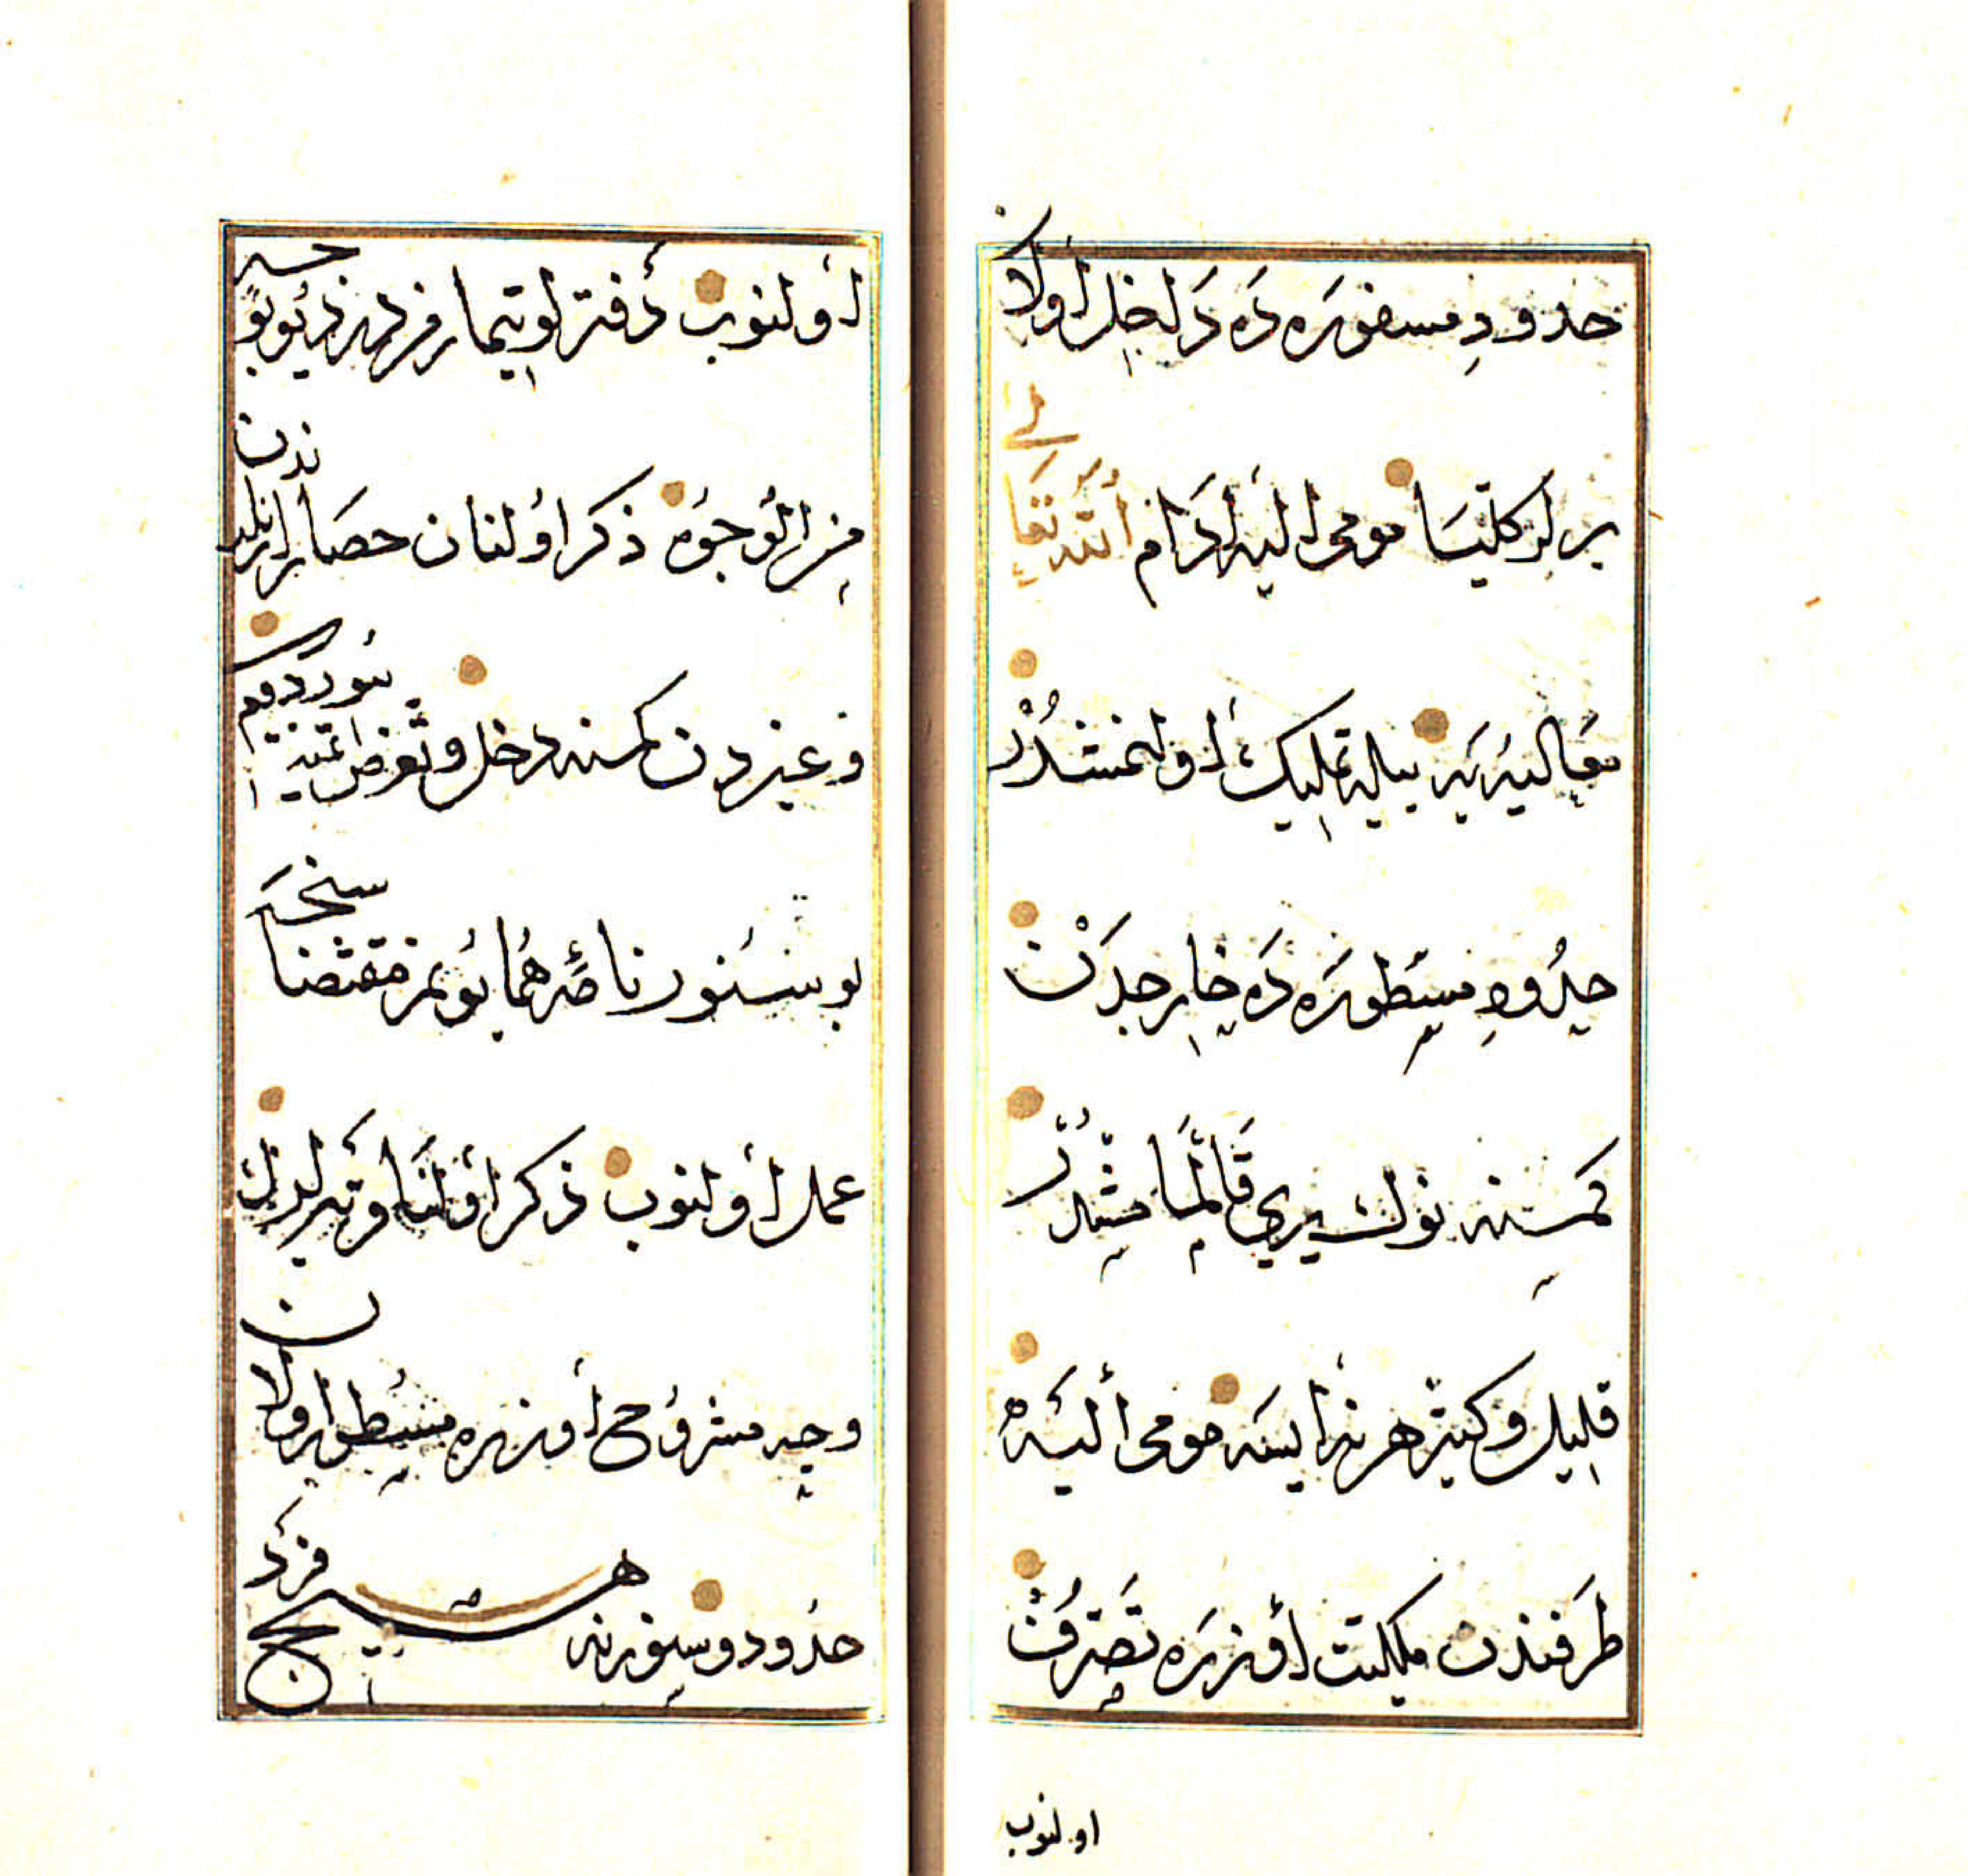 حدودِ مسفورَه دَه دَاخِل اولان
يرلر كلّيًا مومى اليه أدَام اللّه تعَالى
معَاليَه يَه بيله تمليك أولنمشدُرْ
حدُودِ مسطورَه دَه خارِجدَنْ
كمسنه نوك يري قَالمَامشدُرْ
قليل و كثير هر نه ايسَه مومى أليَهْ
طرَفندن ملكيت أوزرَه تصَرفْ
اولنوب
أولنوب دفترلو تيمار فرد
من الوجوُه ذكر اوُلنان حصَار
و غيردن كمسنه دخل و تعرض اتمية
بو سنورنامۀ همايونمز مقتضا سنجه
عمل أولنوب ذكر أولنان يرلرك
وجه مشروُح أوزره مسطور اولان
حدُود و سنورنه هيچ فرد